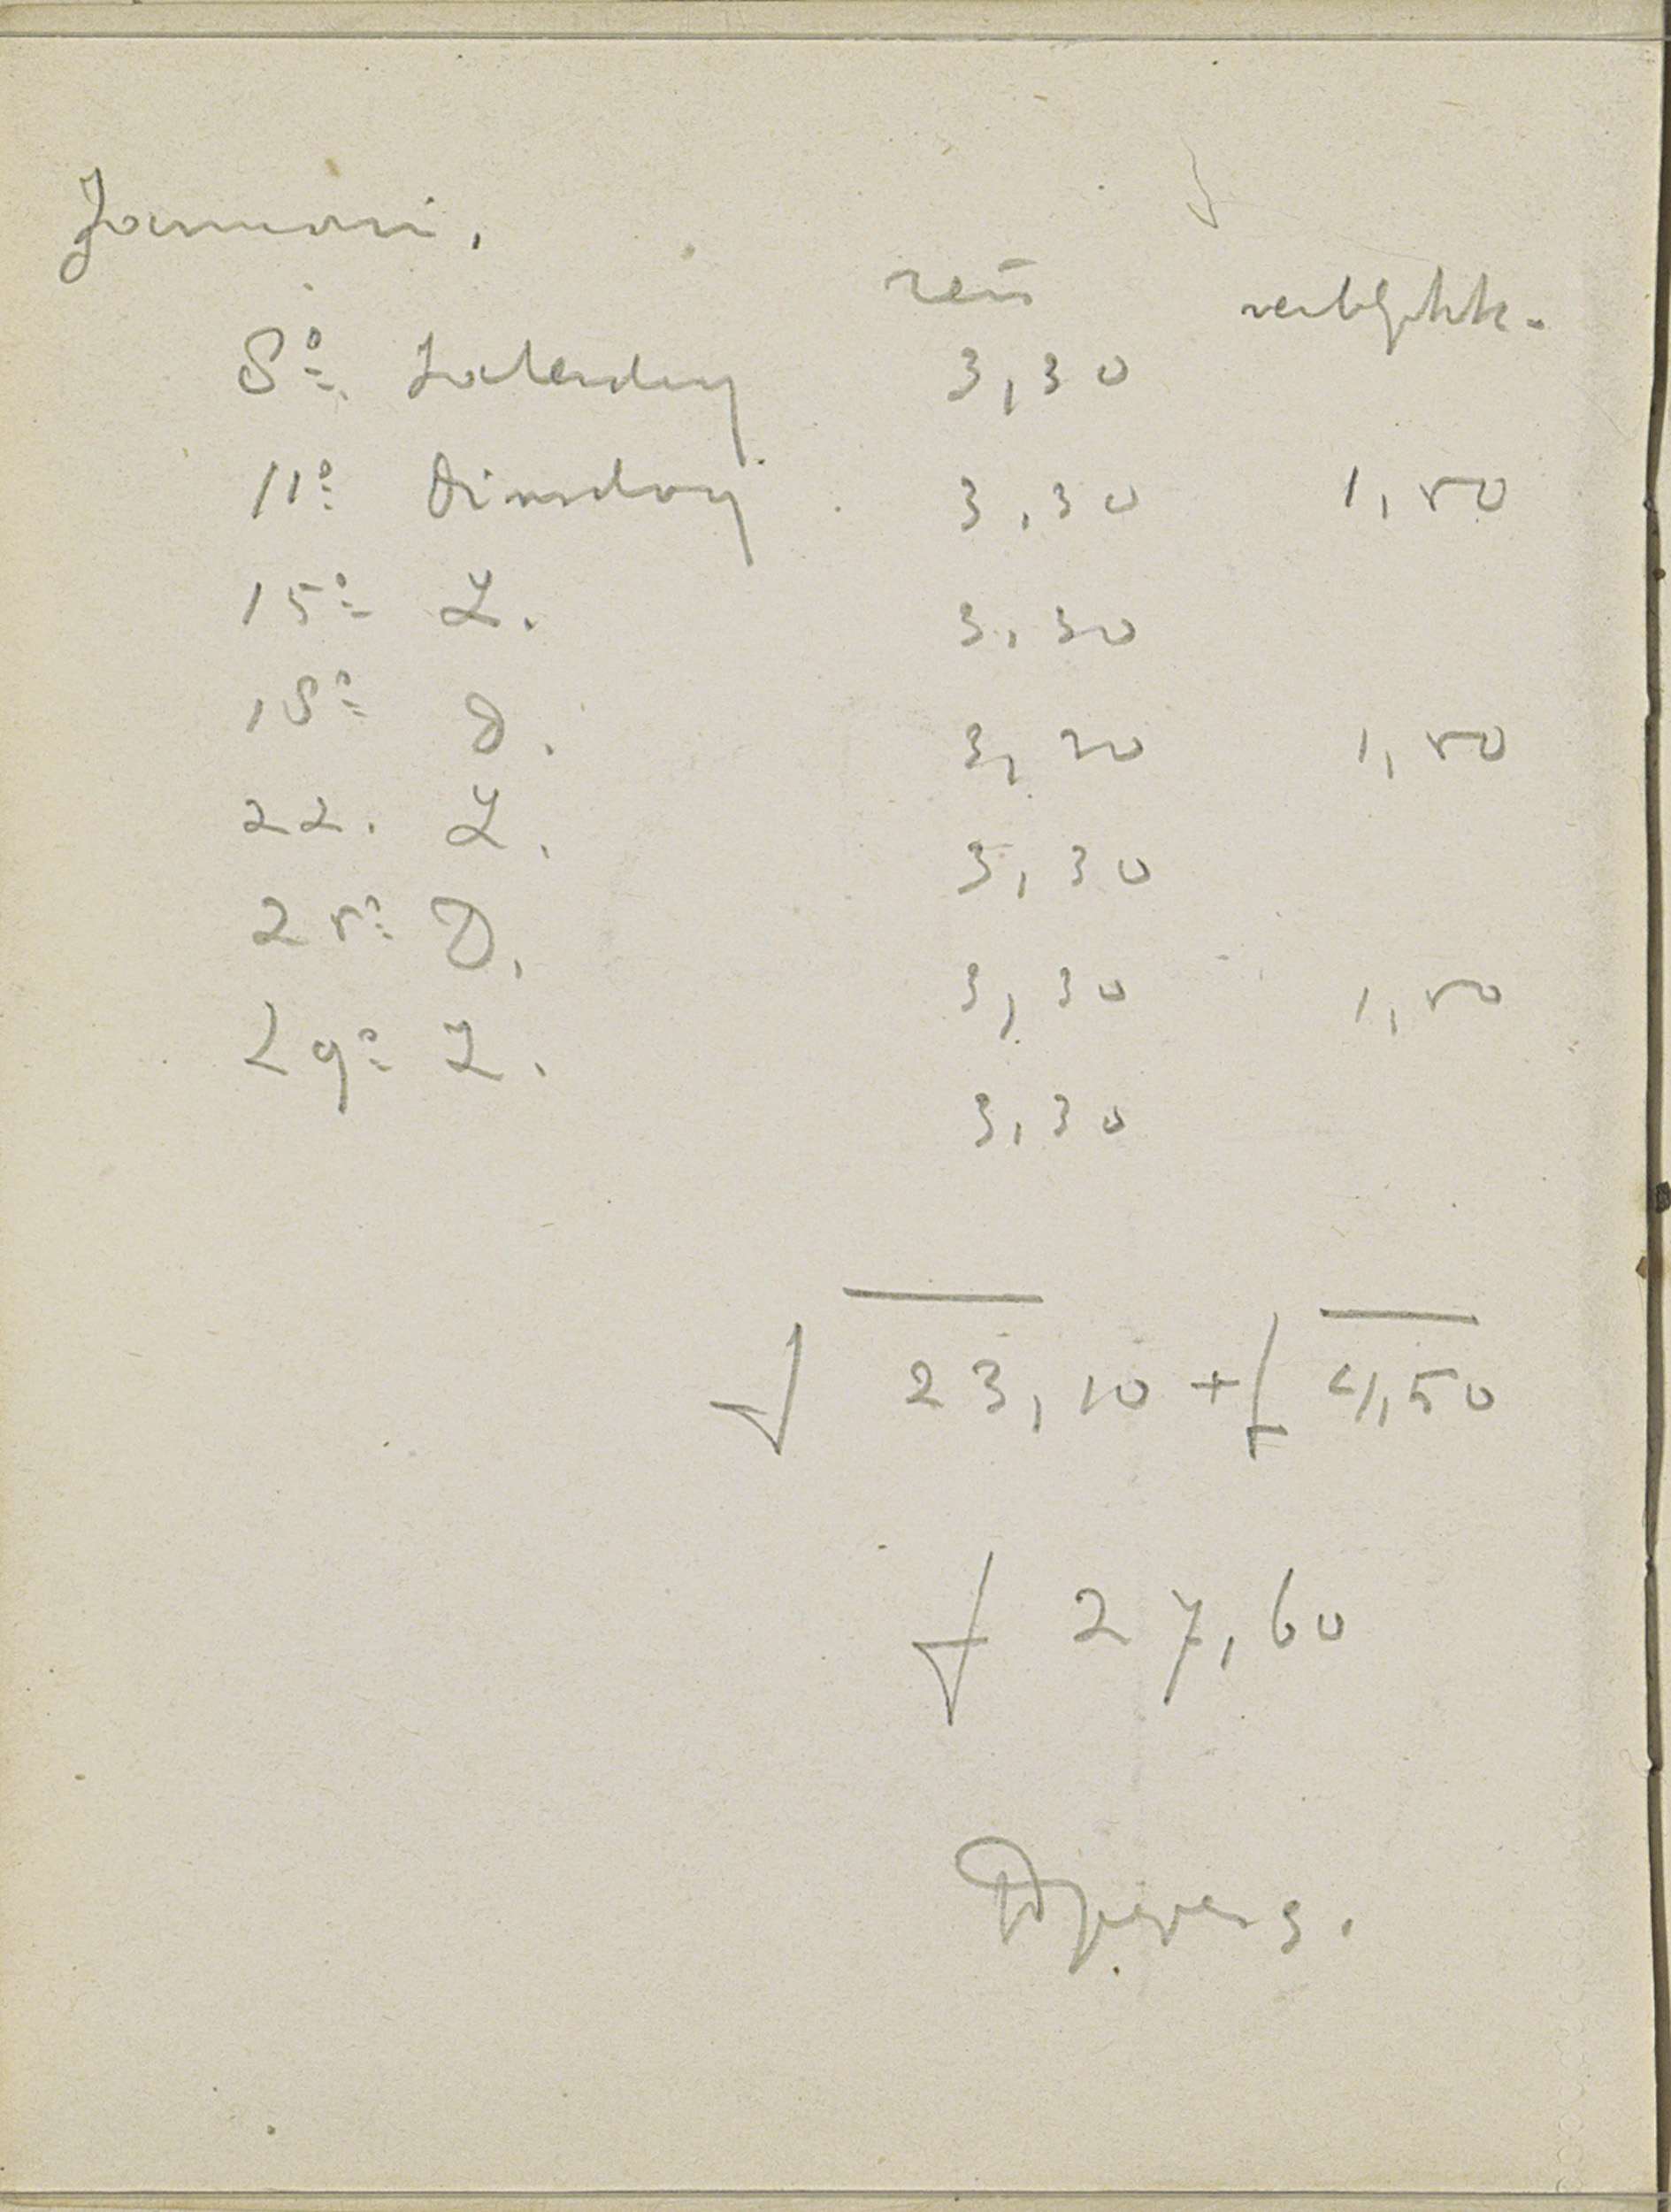 Januari.
reis verblijfk.
8e Zaterdag 3,30
11e Dinsdag 3,30 1,50
15e Z. 3,30
18e D. 3,30 1,50
22. Z. 3,30
25e D. 3,30 1,50
29e Z. 3,30
f 23,10 + f 4,50
f 27,60